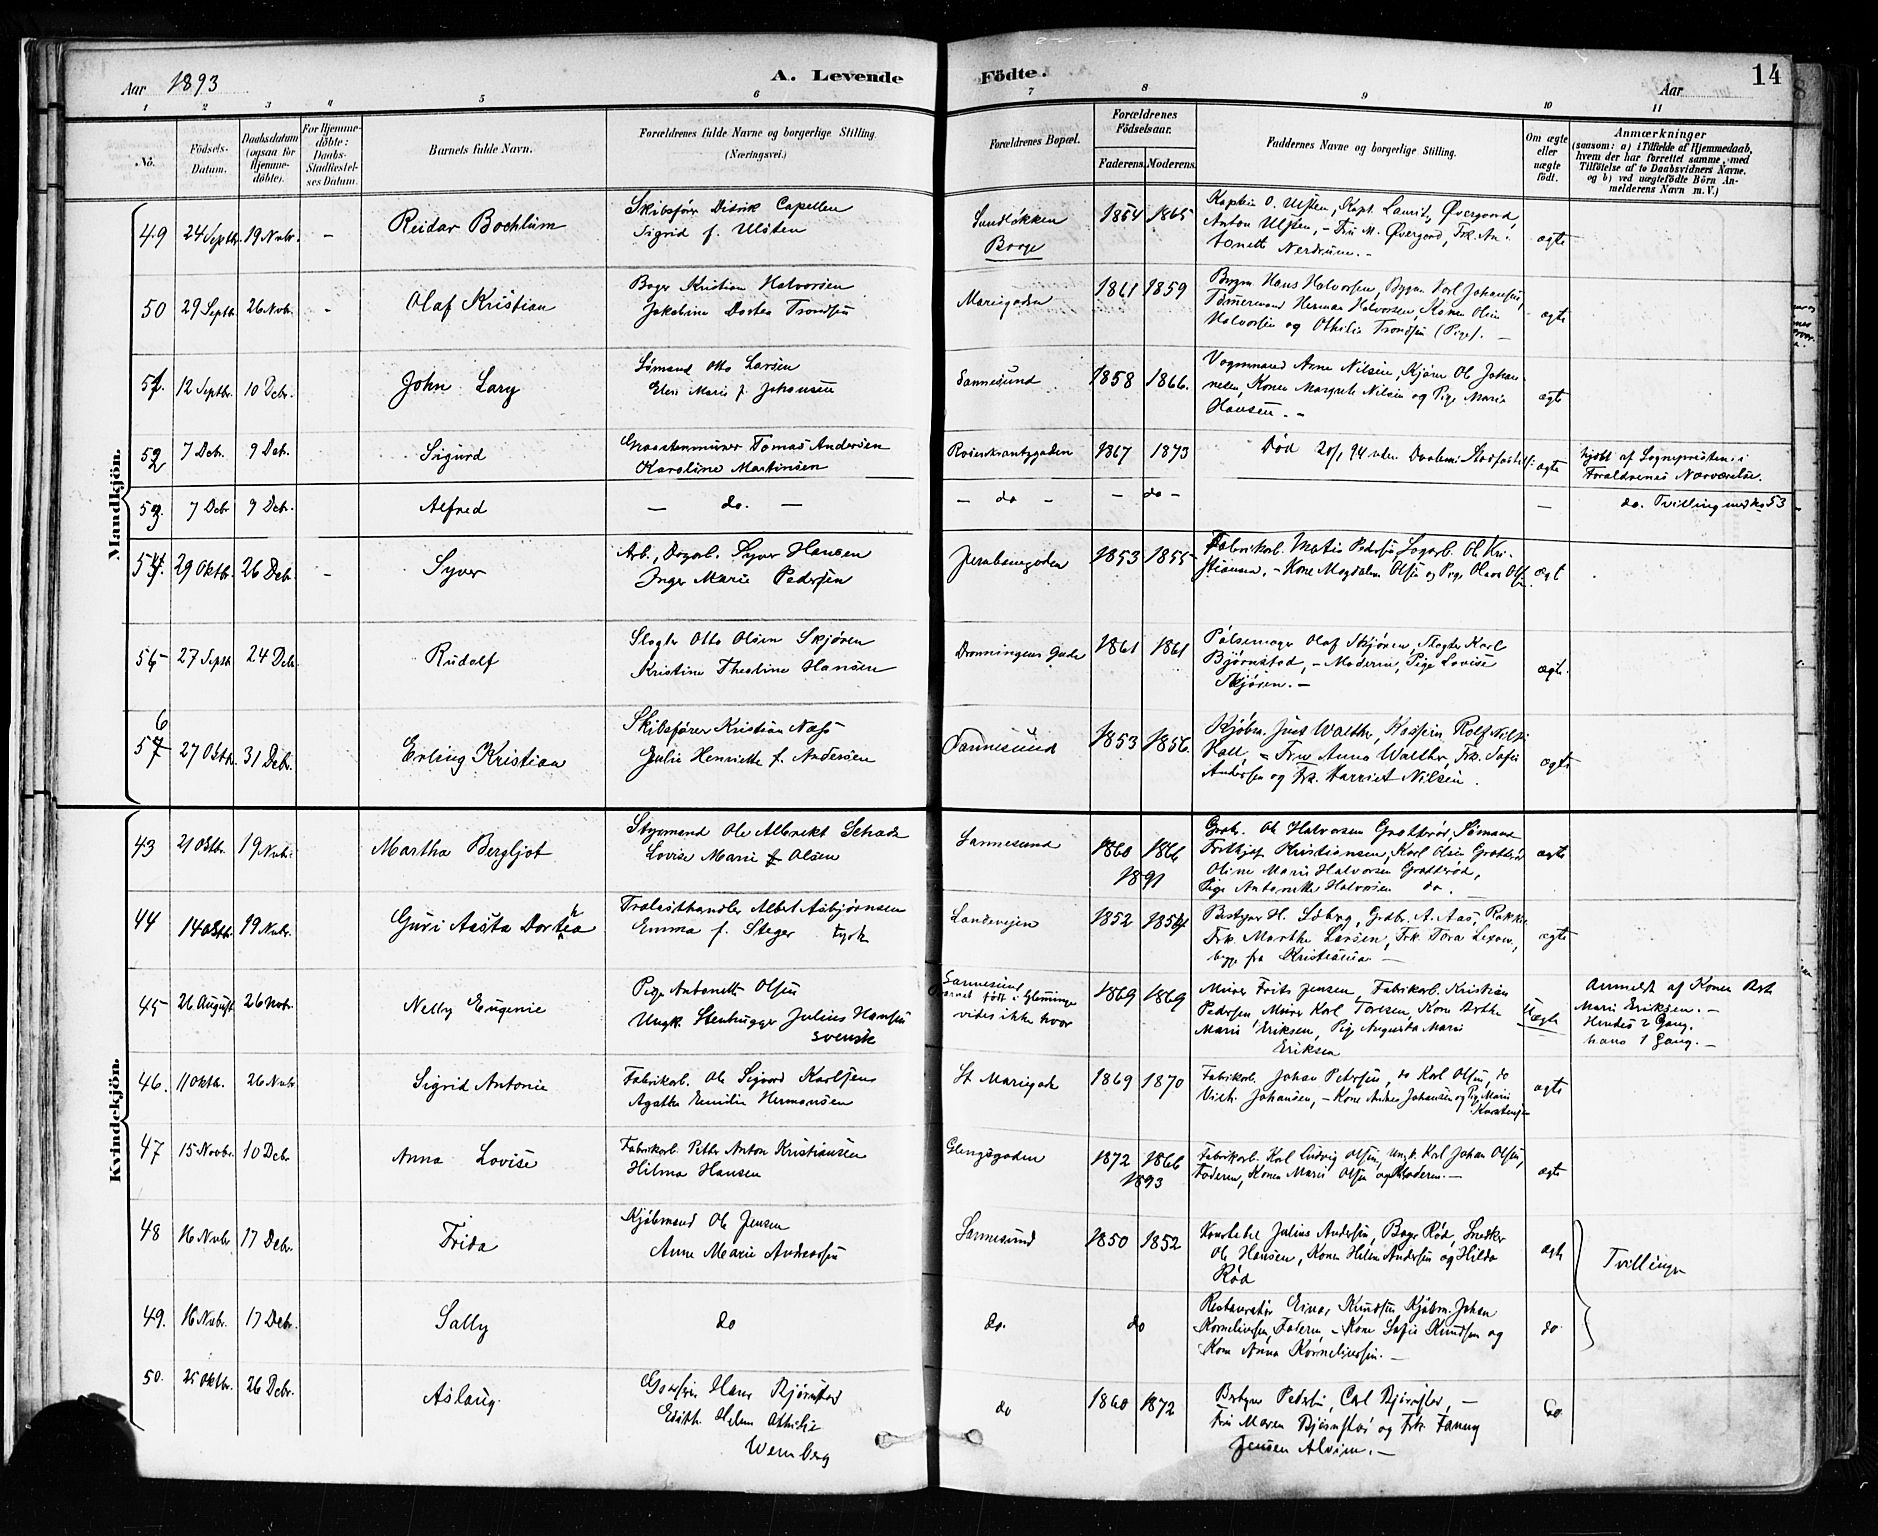 Aar 1893
A. Levende
Födte.
Aar
14
1 2 3 4 5 6 7 8 9 10 11
No.
Födsels-
Datum.
Daabsdatum
(ogsaa for
Hjemme-
döbte).
For Hjemme-
döbte:
Daabs-
Stadfæstel-
ses Datum.
Barnets fulde Navn.
Forældrenes fulde Navne og borgerlige Stilling.
(Næringsvei.)
Forældrenes Bopæl.
Forældrenes
Födselsaar.
Faderens. Moderens.
Faddernes Navne og borgerlige Stilling.
Om ægte
eller
uægte
födt.
Anmærkninger
(saasom: a) i Tilfælde af Hjemmedaab,
hvem der har forrettet samme, med
Tilföielse af to Daabsvidners Navne.
og b) ved uægtefödte Börn An-
melderens Navn m. V.)
Mandkjön.
49 24 Septbr. 19 Nvbr. – Reidar Bochlum
Skibsfører Didrik Capellen
Sigrid f. Ulsten
Sundløkken
Borge
1854 1865
Kaptein O. Ulsten, Kapt. Laurits Øvergaard,
Anton Ulsten, – Fru M. Øvergaard, Frk. An-
tonette Nerdrum. –
ægte
50 29 Septbr. 26 Nvbr. – Olaf Kristian
Bager Kristian Halvorsen
Jakobine Dortea Trondsen
Mariegaden
1861 1859
Bygm Hans Halvorsen, Bygm. Karl Johansen,
Tømmermand Herman Halvorsen, Konen Olin
Halvorsen og Othilie Trondsen (Pige). –
ægte
51. 12 Septbr. 10 Debr. John Lary
Sømand Otto Larsen
Eline Marie f. Johansen
Sannesund
1858 1866.
Vognmand Arne Nilsen, Kjører Ole Johan-
nesen, Konen Margrete Nilsen og Pige Marie
Hansen. –
ægte
52 7 Debr. 9 Debr. Sigurd
Graastenmurer Tomas Andersen
Karoline Martinsen
Rosenkrantzgaden
1867 1873
Død 20/1 94 uden Daabens Stadfæstelse
ægte
hjdbt af Sognepresten i
Forældrenes Nærværelse.
53. 7 Debr 9 Debr. Alfred
– do. –
– do –
– do –
–
do. Tvilling med No 53
54. 29 Oktbr. 26 Debr. – Syver
Arb., Dagarb. Syver Hansen
Inger Marie Pedersen
Jernbanegaden
1853 1855
Fabrikarb. Matis Pedersen, Sagarb. Ole Kri-
stiansen, – Kone Magdalene Olsen og Pige Olava Olsen
ægte
55 27 Septr. 24 Debr. Rudolf
Slagter Otto Olsen Skjøren
Kristine Thestine Hansen
Dronningens Gade
1861 1861
Pølsemager Olaf Skjøren, Slagter Karl
Bjørnstad, – Moderen, Pige Lovise
Skjøren. –
ægte.
6
57 27 Oktbr. 31 Debr. Erling Kristian
Skibsfører Kristian Næss
Julie Henriette f. Andersen
Sannesund
1853 1856.
Kjøbm. Just Walthe, Kasserer Rolf Nilsen
Hall, – Frue Anna Walther, Frk. Sofie
Andersen og Frk. Harriet Nilsen.
ægte
Kvindekjön.
43 21 Oktbr. 19 Nvbr. Martha Bergljot
Styrmand Ole Albrekt Schade
Lovise Marie f Olsen
Sannesund
1860 1866
1891
Grdbr. Ole Halvorsen Grotterød, Sømand
Fritjof Kristiansen, Karl Olsen Grotterød
Oline Marie Halvorsen Grotterød,
Pige Antonette Halvorsen do.
ægte
44 14 Oktb. 19 Nvbr. Guri Aasta Dorthea
Trælasthandler Albert Asbjørnsen
Emma f. Steger tysk
Landevejen
1852 1854
Bestyrer H. Solberg, Grdbr. A. Aas, Rakke
Frk. Marthe Larsen, Frk. Tora Lexow,
begge fra Kristiania –
ægte
45 26 August 26 Nvbr. Nelly Eugenie
Pige Antonette Olsen
Ungk. Stenhugger Julius Hansen
svensk
Sannesund
Barnet født i Glemminge
vides ikke hvor
1869 1869
Murer Frits Jensen, Fabrikarb. Kristian
Pedersen, Murer Karl Toresen, Kone Dorthe
Marie Eriksen, Pige Augusta Marie
Eriksen
Uægte
Anmeldt af Konen Dorthe
Marie Eriksen. –
Hendes 2 Gang.
hans 1 Gang. –
46. 11 Oktb. 26 Nvbr Sigrid Antonie
Fabrikarb. Ole Sigvard Karlsen
Agathe Emilie Hermansen
St. Mariegade
1869 1870
Fabrikarb. Johan Petersen, do Karl Olsen, do
Vilh. Johansen, – Kone Andrea Johansen og Pige Marie
Karstensen
ægte
47 15 Novbr. 10 Debr Anna Lovise
Fabrikarb. Petter Anton Kristiansen
Hilma Hansen
Glengsgaden
1872 1866
1893
Fabrikarb. Karl Ludvig Olsen, Ungk. Karl Johan Olsen,
Faderen, Konen Marie Olsen og Moderen. –
ægte
48 16 Nvbr 17 Debr. Frida
Kjøbmand Ole Jensen
Anne Marie Andreassen
Sannesund
1850 1852
Konstabel Julius Andersen, Bager Rød, Snedker
Ole Hansen, Konen Helene Andersen og Hilda
Rød
ægte
Tvillinger
49. 16 Nvbr. 17 Debr. Sally
do
do.
do
Restauratør Einar Knudsen, Kjøbm. Johan
Korneliussen, Faderen, – Kone Sofie Knudsen og
Kone Anna Korneliussen. –
do
50. 25 Oktbr. 26 Debr. Aslaug.
Hans Bjørnstad
Edith Helene Othilie
Wernberg
do
1860 1872
Bestyrer Pedersen, Carl Bjørnstad, –
Fru Maren Bjørnstad og Frk Fanny
Jensen Alvim. –
do